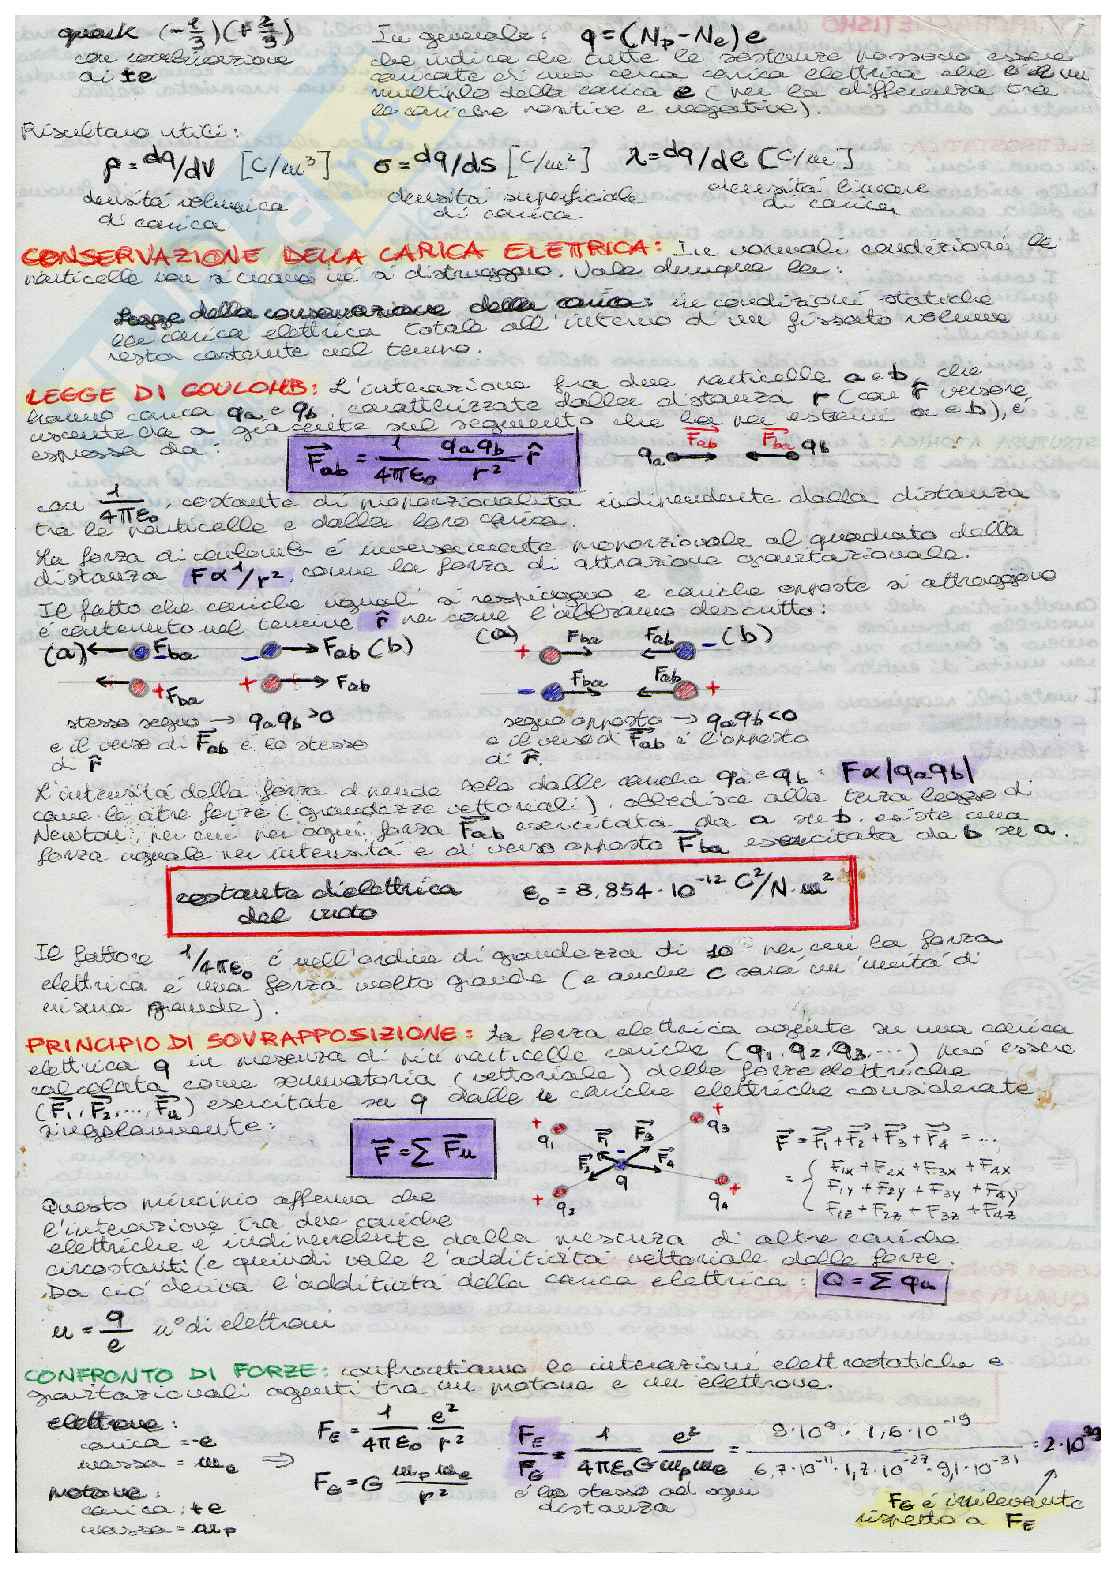 quark (-1/3)(+2/3)
con combinazione
di ±e
In generale: q=(Np-Ne)e
che indica che tutte le sostanze possono essere
caricate di una certa carica elettrica che è un
multiplo della carica e (per la differenza tra
le cariche positive e negative).
Risultano utili:
ρ=dq/dV [C/m³] σ=dq/ds [C/m²] λ=dq/dl [C/m]
densità volumica
di carica
densità superficiale
di carica
densità lineare
di carica
CONSERVAZIONE DELLA CARICA ELETTRICA: In normali condizioni le
particelle non si creano né si distruggono. Vale dunque la:
Legge della conservazione della carica: in condizioni statiche
la carica elettrica totale all'interno di un fissato volume
resta costante nel tempo.
LEGGE DI COULOMB: L'interazione fra due particelle a e b, che
hanno carica qa e qb, caratterizzate dalla distanza r (con r̂ versore,
uscente da a giacente sul segmento che ha per estremi a e b), è
espressa da:
F⃗ab = 1/4πε₀ qaqb/r² r̂
F⃗ab F⃗ba
qa qb
con 1/4πε₀, costante di proporzionalità indipendente dalla distanza
tra le particelle e dalla loro carica.
La forza di coulomb è inversamente proporzionale al quadrato della
distanza F∝1/r², come la forza di attrazione gravitazionale.
Il fatto che cariche uguali si respingono e cariche opposte si attraggono
è contenuto nel termine r̂ per come l'abbiamo descritto:
(a) Fba - - Fab (b)
+ Fba + Fab
(a) + Fba Fab - (b)
- Fba Fab +
stesso segno → qaqb>0
e il verso di F⃗ab è lo stesso
di r̂
segno opposto → qaqb<0
e il verso di F⃗ab è l'opposto
di r̂.
L'intensità della forza dipende solo dalle cariche qa e qb: F∝|qaqb|
come le altre forze (grandezze vettoriali), obbedisce alla terza legge di
Newton, per cui per ogni forza F⃗ab esercitata da a su b, esiste una
forza uguale per intensità e di verso opposto F⃗ba esercitata da b su a.
costante dielettrica
del vuoto
ε₀ = 8,854·10⁻¹² C²/N·m²
Il fattore 1/4πε₀ è nell'ordine di grandezza di 10⁹ per cui la forza
elettrica è una forza molto grande (e anche C sarà un'unità di
misura grande).
PRINCIPIO DI SOVRAPPOSIZIONE: La forza elettrica agente su una carica
elettrica q in presenza di più particelle cariche (q1, q2, q3, ...) può essere
calcolata come sommatoria (vettoriale) delle forze elettriche
(F⃗1, F⃗2, ..., F⃗n) esercitate su q dalle n cariche elettriche considerate
singolarmente:
F⃗=∑F⃗n
+ q1 + q3 + q2 + q4 - q
F⃗1 F⃗3 F⃗2 F⃗4
F⃗=F⃗1+F⃗2+F⃗3+F⃗4=...
= { F1x+F2x+F3x+F4x
F1y+F2y+F3y+F4y
F1z+F2z+F3z+F4z
Questo principio afferma che
l'interazione tra due cariche
elettriche è indipendente dalla presenza di altre cariche
circostanti (e quindi vale l'additività vettoriale delle forze.
Da ciò deriva l'additività della carica elettrica: Q=∑qn
n = q/e n° di elettroni
CONFRONTO DI FORZE: confrontiamo le interazioni elettrostatiche e
gravitazionali agenti tra un protone e un elettrone.
elettrone:
carica = -e
massa = me
protone:
carica: +e
massa = mp
⇒
FE = 1/4πε₀ e²/r²
FG = G mpme/r²
FE/FG = 1/4πε₀G e²/mpme = 9·10⁹·1,6·10⁻¹⁹/6,7·10⁻¹¹·1,7·10⁻²⁷·9,1·10⁻³¹ = 2·10³⁹
è la stesso ad ogni
distanza
FG è irrilevante
rispetto a FE